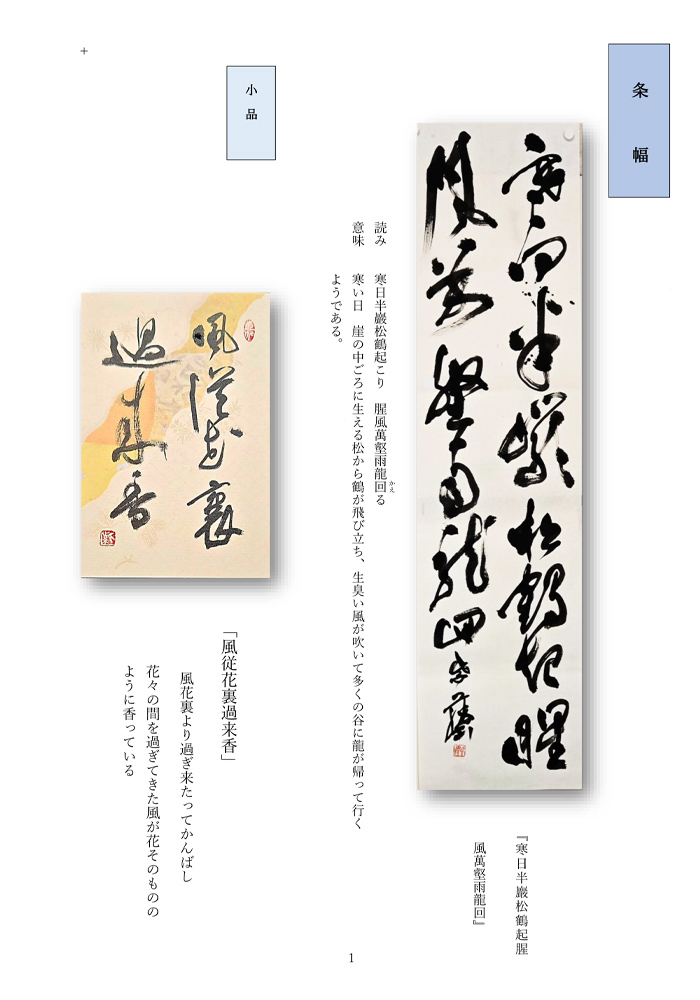 条幅
寒日半巖松鶴起腥
風萬壑雨龍回
『寒日半巖松鶴起腥
風萬壑雨龍回』
読み　寒日半巖松鶴起こり　腥風萬壑雨龍回る
かえ
意味　寒い日　崖の中ごろに生える松から鶴が飛び立ち、生臭い風が吹いて多くの谷に龍が帰って行く
ようである。
小品
風従花裏
過来香
「風従花裏過来香」
風花裏より過ぎ来たってかんばし
花々の間を過ぎてきた風が花そのものの
ように香っている
1